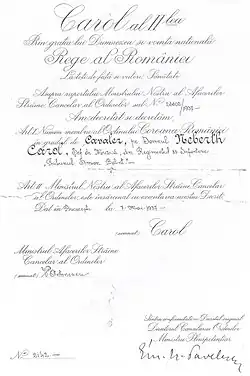 Carol al II-lea
Prin grația lui Dumnezeu și voința națională
Rege al României
La toți de față și viitori Sănătate
Asupra raportului Ministrului Nostru al Afacerilor
Străine Cancelar al Ordinelor sub No
Am decretat și decretăm
Art. I. Numim membru al Ordinului Coroana României
în gradul de Cavaler, pe Domnul Neberth
Carol, din Regimentul Infanterie
Art. II Ministrul Nostru al Afacerilor Străine Cancelar
al Ordinelor, este însărcinat cu executarea acestui Decret.
Dat în București la 7 Mai 1935
Carol
Ministrul Afacerilor Străine
Cancelar al Ordinelor
Pentru conformitate cu Decretul original
Directorul Cancelariei Ordinelor
Ministru Plenipotențiar
No